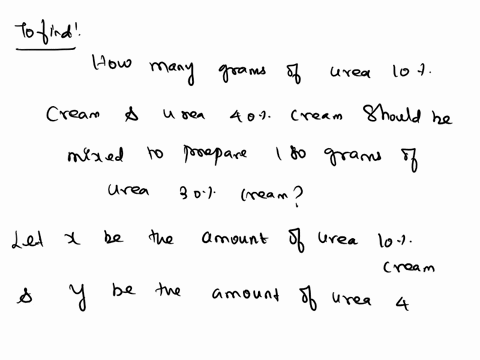 To find!
How many grams of urea 10%
cream & urea 40% cream should be
mixed to prepare 180 grams of
urea 30% cream?
Let x be the amount of urea 10%
cream
& y be the amount of urea 4